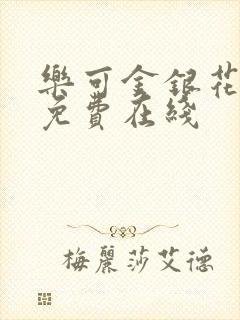 樂可金銀花
免費在綫
梅麗莎艾德